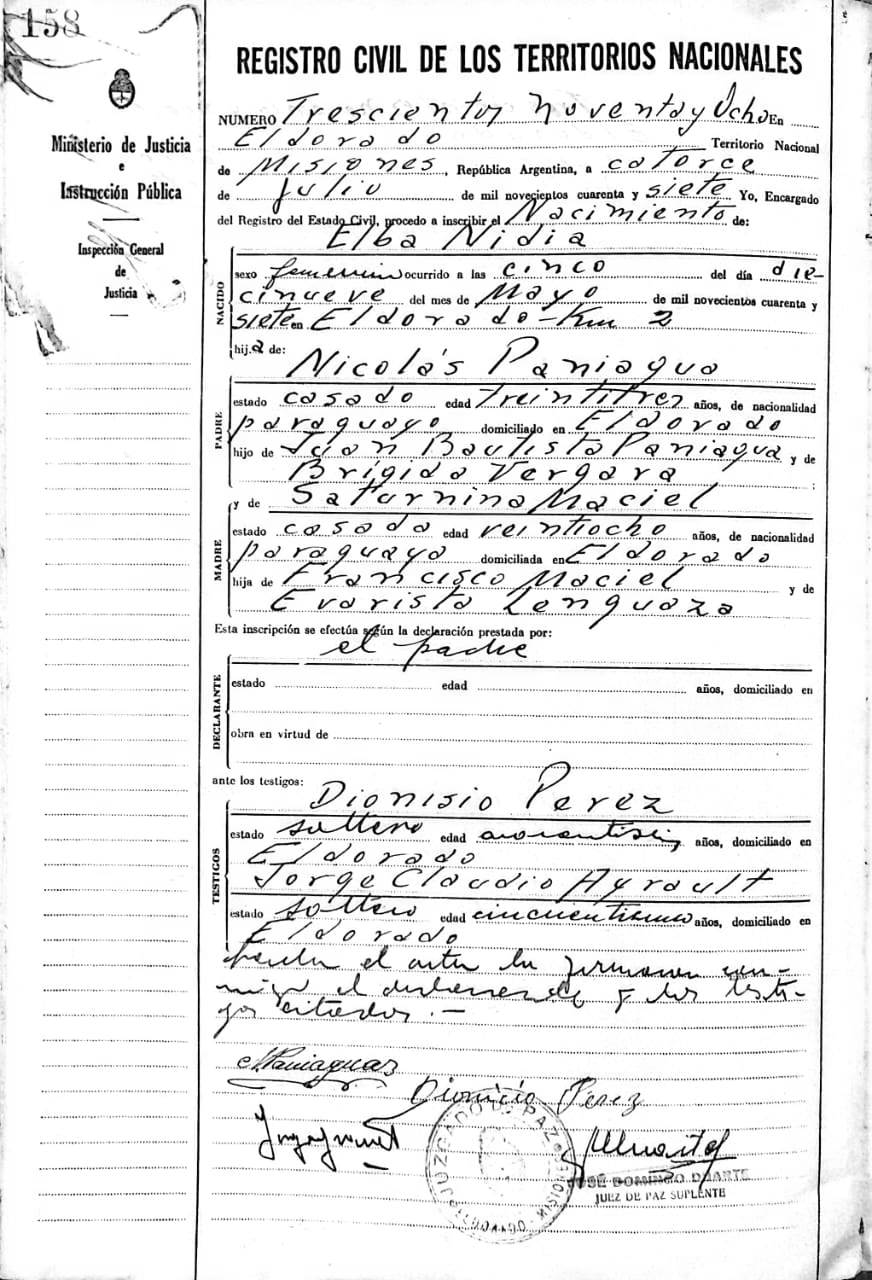 158
Ministerio de Justicia
e
Instrucción Pública
Inspección General
de
Justicia
REGISTRO CIVIL DE LOS TERRITORIOS NACIONALES
NUMERO Trescientos Noventa y Ocho En
Eldorado Territorio Nacional
de Misiones, República Argentina, a catorce
de Julio de mil novecientos cuarenta y siete Yo, Encargado
del Registro del Estado Civil, procedo a inscribir el Nacimiento de:
Elba Nidia
NACIDO
sexo femenin ocurrido a las cinco del día die-
cinueve del mes de Mayo de mil novecientos cuarenta y
siete en Eldorado - Km 2
hij.a de:
Nicolás Paniagua
PADRE
estado casado edad treintitres años, de nacionalidad
paraguayo domiciliado en Eldorado
hijo de Juan Bautista Paniagua y de
Brigida Vergara
y de Saturnina Maciel
MADRE
estado casada edad veintiocho años, de nacionalidad
paraguaya domiciliada en Eldorado
hija de Francisco Maciel y de
Evarista Lenguaza
Esta inscripción se efectúa según la declaración prestada por:
el padre
DECLARANTE
estado edad años, domiciliado en
obra en virtud de
ante los testigos:
Dionisio Perez
TESTIGOS
estado soltero edad años, domiciliado en
Eldorado
Jorge Claudio Ayrault
estado soltero edad cincuentiuno años, domiciliado en
Eldorado
el acta la firmaron con-
migo el declarante y los testi-
gos citados.-
NPaniaguas
Dionicio Perez
JUZGADO DE PAZ
MISIONES
ELDORADO
JOSÉ DOMINGO DUARTE
JUEZ DE PAZ SUPLENTE